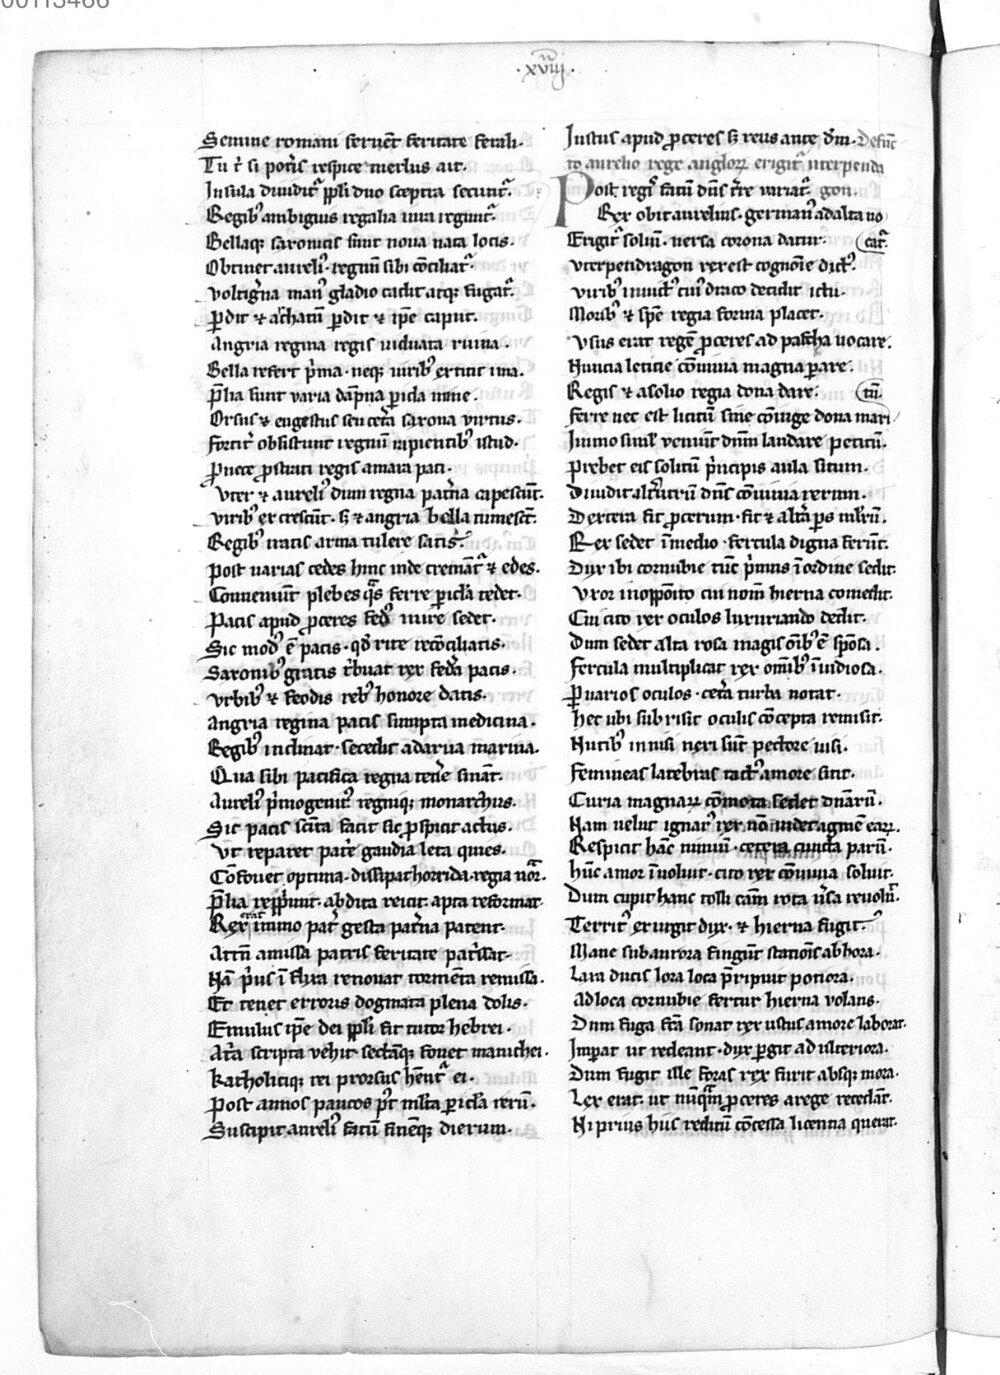 ·xviij·
Semine romani seruēt feritate ferali·
Tu r̄ si pot̄is respice merlus ait·
Insula diuidit᷑ pp̄li duo sceptra secunt᷑·
Regibꝰ ambiguis regalia iura regunt᷑·
Bellaqꝫ saxonicis sunt noua nata locis·
Obtinet aureliꝰ regnū sibi cōciliat᷑·
Voltig̾na manꝰ gladio cadit atqꝫ fugat᷑·
ꝑdit ⁊ achatū ꝑdit ⁊ ip̄e caput·
Angria regina regis uiduata ruina·
Bella refert p̾ma· neqꝫ uiribꝰ extitit ima·
P̄lia sunt uaria dāpna ꝑicla mine·
Orsus ⁊ engestus seu cet̾a saxona uirtus·
Fortit̾ obsistunt regnū rapientibꝰ istud·
ꝓ nece ꝓstrati regis amara pati·
Vter ⁊ aureliꝰ dum regna pat̾na capescūt·
Viribꝰ excrescūt· sꝫ ⁊ angria bella tumescūt·
Regibꝰ natis arma tulere satis·
Post uarias cedes hinc inde cremant᷑ ⁊ edes·
Conueniūt plebes q̄s ferre ꝑicla tedet·
Pacis apud ꝓceres fedꝰ inire sedet·
Sic modꝰ ē pacis· qd̾ rite recōciliatis·
Saxonibꝰ gratis t̾buat rex fed̾a pacis·
Vrbibꝰ ⁊ feodis rebꝰ honore datis·
Angria regina pacis sumpta medicina·
Regibꝰ inclinat· secedit ad arua marina·
Qua sibi pacifica regna ten̾e sināt·
Aureliꝰ p̾mogenitꝰ regnūqꝫ monarchus·
Sic pacis sc̄ita facit sic ꝓspicit actus·
Vt reparet pat̾e gaudia leta quies·
Cōfouet optima· dissipat horrida· regia nor̄·
P̄lia rep̾munt· abdita reicit· apta reformat·
Rex erat immo pat̾ gesta pat̾na patent·
Attn̄ amissa patris feritate pat̾sat·
Nā p̾us ī flua renouat tormēta remissa·
Et tenet erroris dogmata plena dolis·
Emulus ip̄e dei pp̄li fit tutor hebrei·
At̾a scripta uehit sectāqꝫ fouet manichei·
Katholiciqꝫ rei prorsus hēnt᷑ ei·
Post annos paucos pꝰt milta ꝑicla rerū·
Suscipit aureliꝰ fatū finēqꝫ dierum·
Iustus apud ꝓceres sꝫ reus ante dn̄m· Defunc
to aurelio rege angloꝝ erigit᷑ uterpendra
Post regꝭ fatū dn̄s t̾re uariat᷑ gon·
Rex obit aurelius· germanꝰ ad alta uo
Erigit᷑ soliū· uersa corona datur· (cat᷑·
Vterpendragon rex est cognoīe dictꝰ·
Viribꝰ inuictꝰ cuiꝰ draco decidit ictu·
Moribꝰ ⁊ spē regia forma placet·
Vsus erat regē ꝓceres ad pascha uocare·
Nuncia leticie cōuiuia magna parare·
Regis ⁊ a solio regia dona dare· (tū·
Ferre nec est licitū sine cōiuge dona mari
Immo simul ueniūt dn̄m laudare petitū·
Prebet eis solitū p̾ncipis aula situm·
Diuidit alt̾utrū dn̄s cōuiuia rerum·
Dextera fit ꝓcerum· fit ⁊ alt̾a ps̄ ml̾rū·
Rex sedet ī medio· fercula digna ferūt·
Dux ibi cornubie tūc p̾mus ī ordine sedit·
Vxor in opposito cui nom̄ hierna comedit·
Cui cito rex oculos luxuriando dedit·
Dum sedet alta rosa magis oībꝰ ē sp̄osa·
Fercula multiplicat rex omībꝰ īuidiosa·
ꝑ uarios oculos· cet̾a turba notat·
Hec ubi subrisit oculis cōcepta remisit·
Nutibꝰ in nisi ueri sūt pectore uisi·
Femineas latebras tactꝰ amore sitit·
Curia magnaꝝ cōmota sedet dn̄arū·
Nam uelut ignarꝰ rex nō uidet agmē eaꝝ·
Respicit hāc nimiū· cetera cuncta parū·
Hūc amor īuoluit· cito rex cōuiuia soluit·
Dum cupit hanc tolli cām rota ūsa reuolūt᷑·
Territꝰ exurgit dux· ⁊ hierna fugit·
Mane sub aurora fingūt stationīs abhora·
Laxa ducis lora loca p̾ripuit potiora·
Ad loca cornubie fertur hierna uolans·
Dum fuga ſc̄a sonat rex ustus amore laborat·
Imꝑat ut redeant· dux ꝑgit ad ulteriora·
Dum fugit ille foras rex furit absqꝫ mora·
Lex erat· ut nūqm̄ ꝓceres a rege recedāt·
Ni prius hiis reditū cōcessa licentia querat·